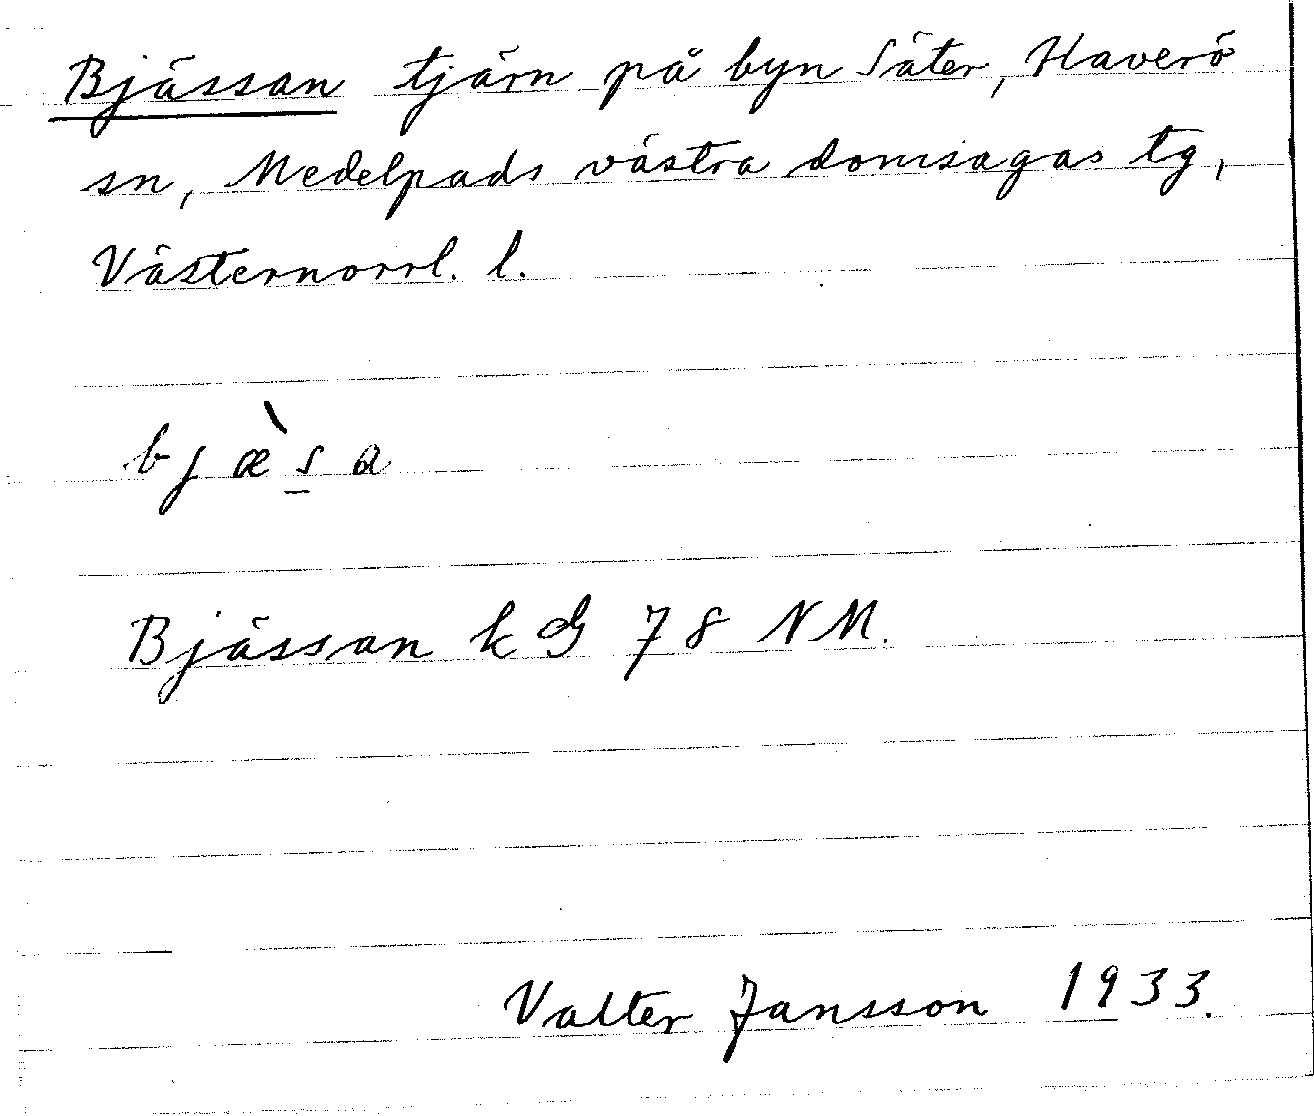 Bjässan tjärn på byn Säter, Haverö
sn, Medelpads västra domsagas tg,
Västernorrl. l.
bjæ̀s̲a
Bjässan k G 78 NM.
Valter Jansson 1933.